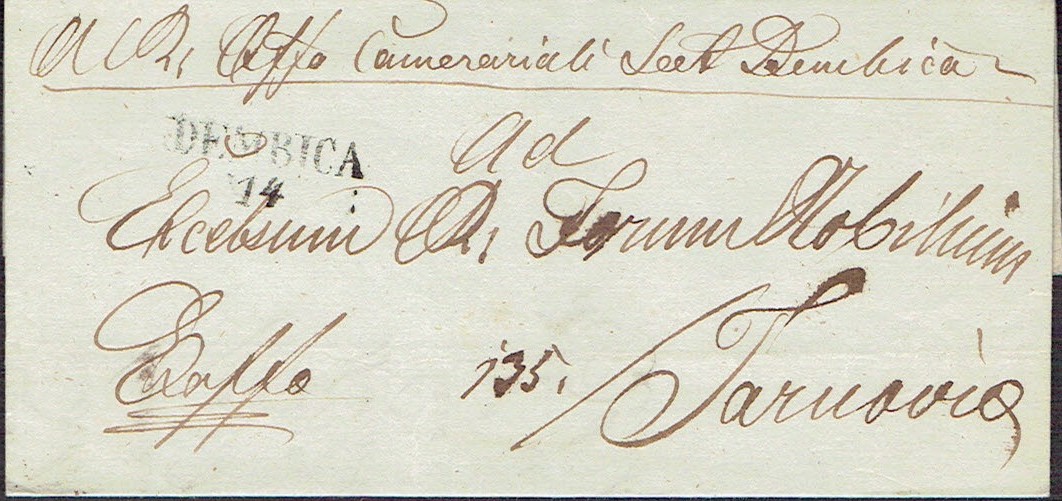 A C R. Offo Camerariali Sect Dembica
DEMBICA
14
Ad
Excelsum C R. Forum Nobilium
Exoffo 135. Tarnoviæ